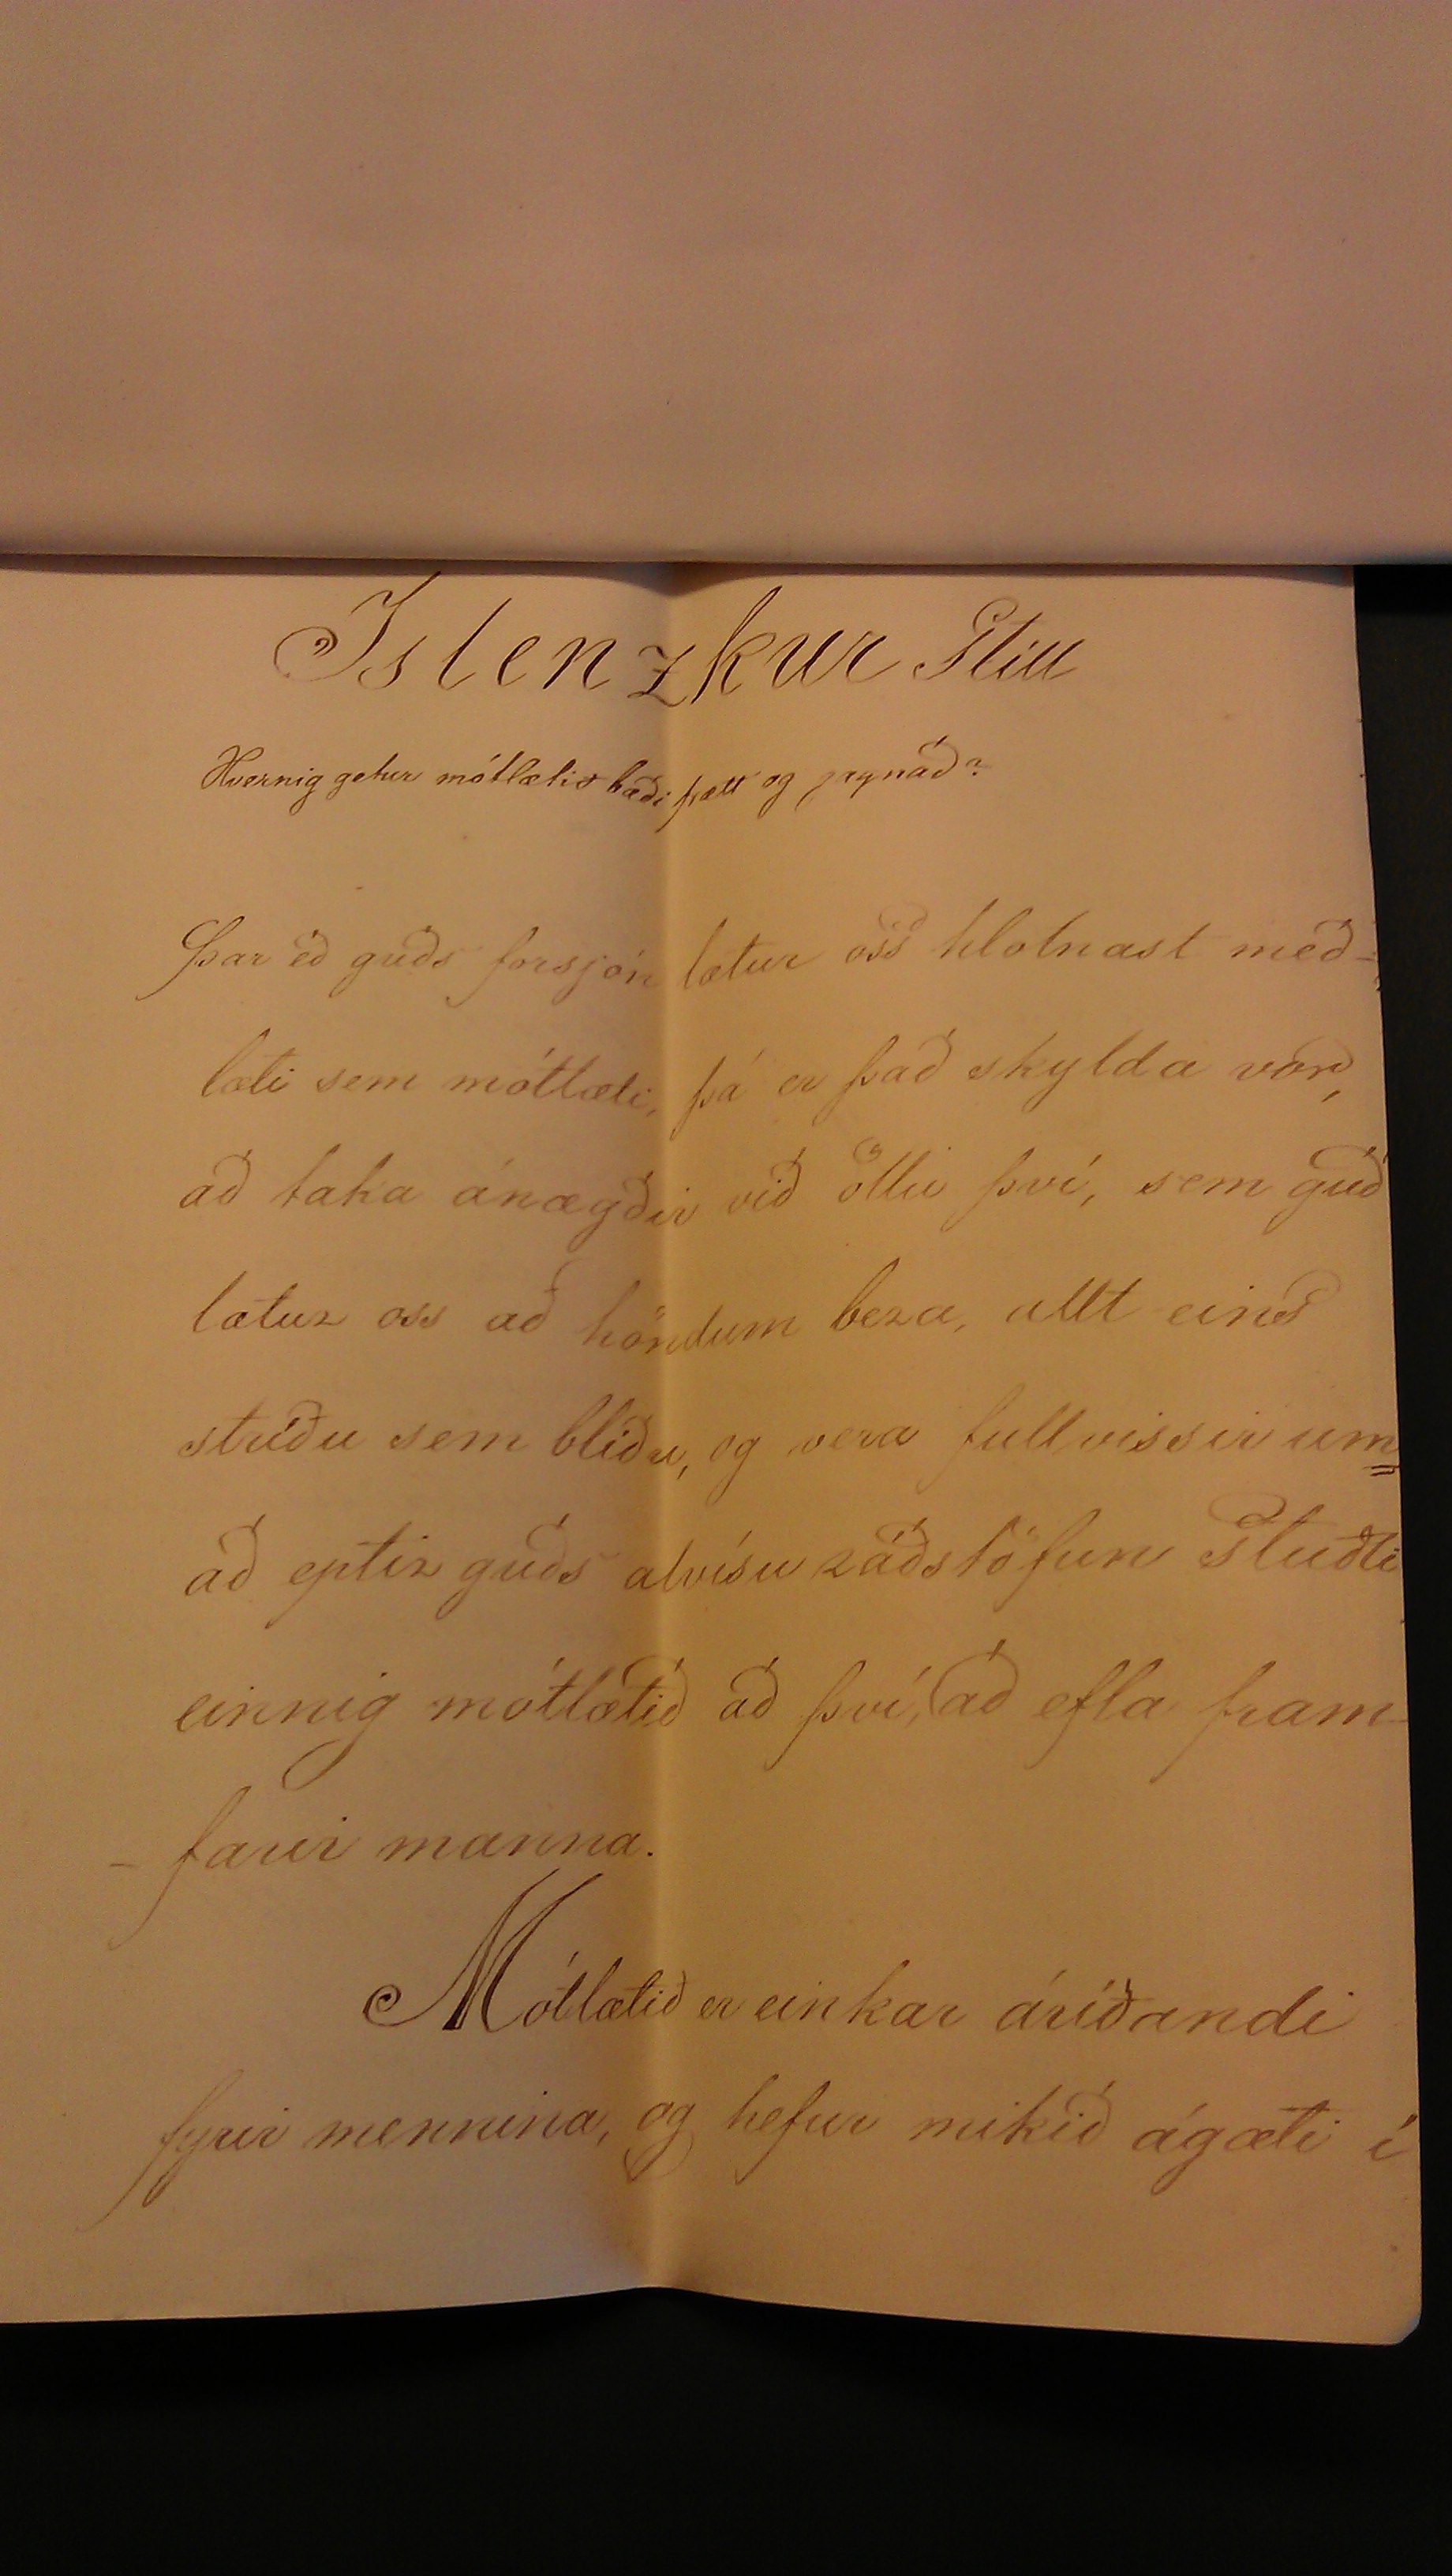 Islenzkur Stíll
Hvernig getur mótlætið bæði frætt og gagnað?
Þar eð guðs forsjón lætur oss hlotnast með-
læti sem mótlæti, þá er það skylda vor,
að taka ánægðir við öllu því, sem guð
lætur oss að höndum bera, allt eins
stríðu sem blíðu, og vera fullvissir um
að eptir guðs alvísu ráðstöfun stuðli
einnig mótlætið að því, að efla fram-
-farir manna.
Mótlætið er einkar áríðandi
fyrir mennina, og hefur mikið ágæti í